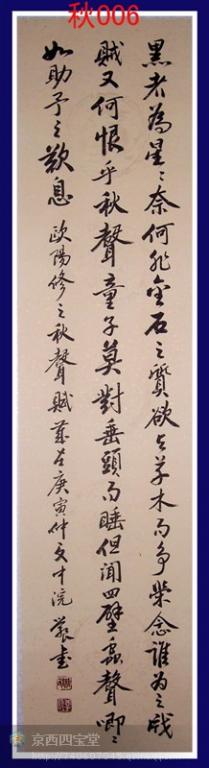 秋006
黑者為星〻奈何非金石之質欲与草木而爭榮念誰為之戕
賊又何恨乎秋聲童子莫對垂頭而睡但聞四壁蟲聲唧〻
如助予之歎息
歐陽修之秋聲賦 庚寅仲夏 書
京西四宝堂